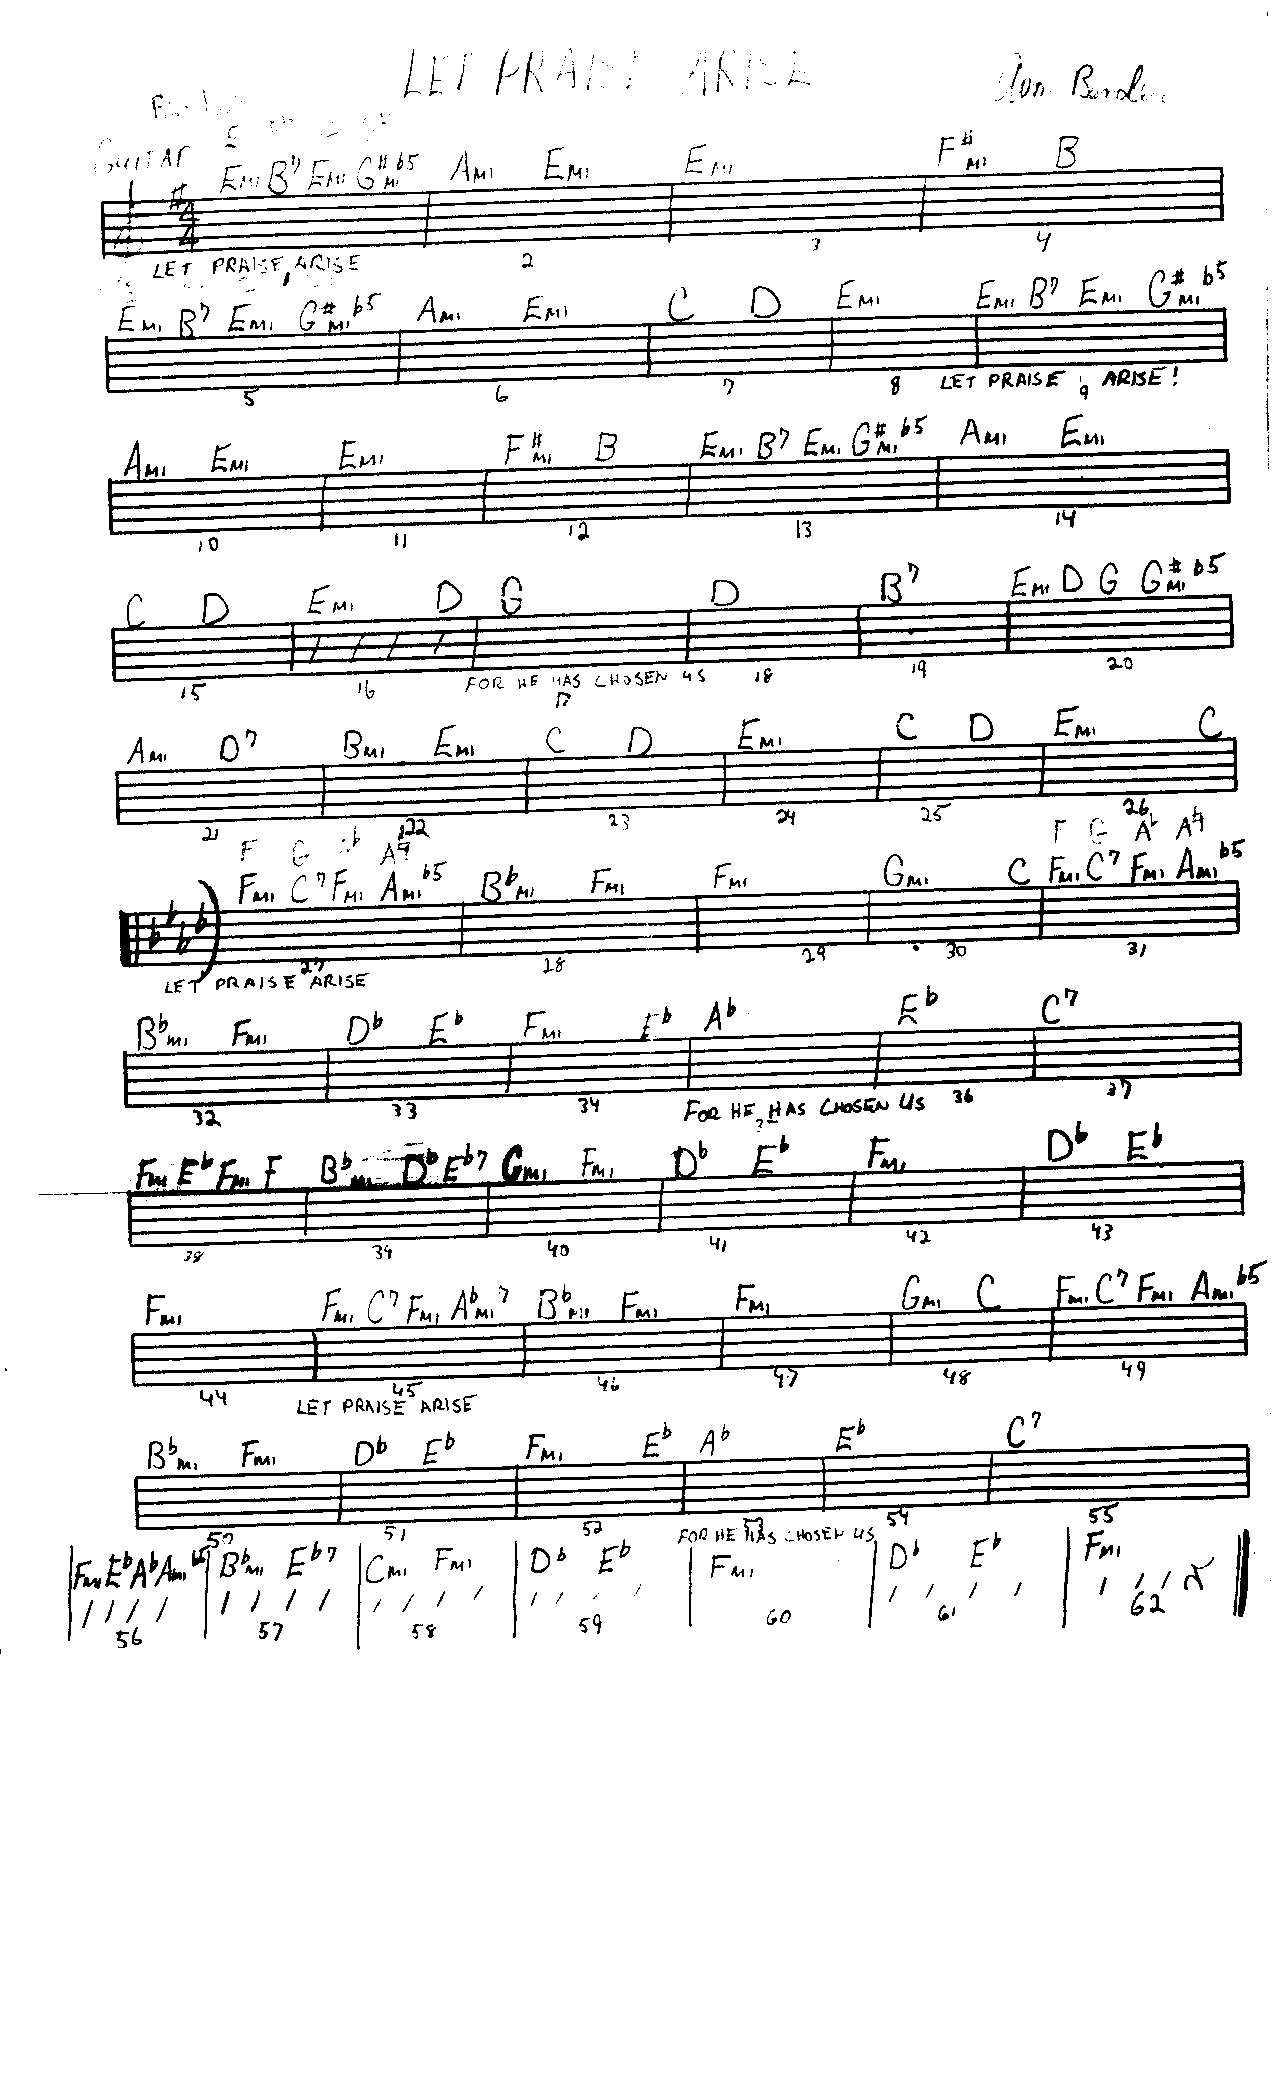 LET PRAISE ARISE
GUITAR
Emi B7 Emi G#mi b5 Ami Emi Emi F#mi B
4 4
2 3 4
LET PRAISE, ARISE
Emi B7 Emi G#mi b5 Ami Emi C D Emi Emi B7 Emi G#mi b5
5 6 7 8 9
LET PRAISE ARISE!
Ami Emi Emi F#mi B Emi B7 Emi G#mi b5 Ami Emi
10 11 12 13 14
C D Emi D G D B7 Emi D G G#mi b5
15 16 17 18 19 20
FOR HE HAS CHOSEN US
Ami D7 Bmi Emi C D Emi C D Emi C
21 22 23 24 25 26
F G A♮ F G Ab A♮
Fmi C7 Fmi Ami b5 Bbmi Fmi Fmi Gmi C Fmi C7 Fmi Ami b5
27 28 29 30 31
LET PRAISE ARISE
Bbmi Fmi Db Eb Fmi Eb Ab Eb C7
32 33 34 36 37
FOR HE HAS CHOSEN US
Fmi Eb Fmi F Bbmi Db Eb7 Gmi Fmi Db Eb Fmi Db Eb
38 39 40 41 42 43
Fmi Fmi C7 Fmi Abmi7 Bbmi Fmi Fmi Gmi C Fmi C7 Fmi Ami b5
44 45 46 47 48 49
LET PRAISE ARISE
Bbmi Fmi Db Eb Fmi Eb Ab Eb C7
50 51 52 53 54 55
FOR HE HAS CHOSEN US
Fmi Eb Ab Ami b5 Bbmi Eb7 Cmi Fmi Db Eb Fmi Db Eb Fmi
56 57 58 59 60 61 62